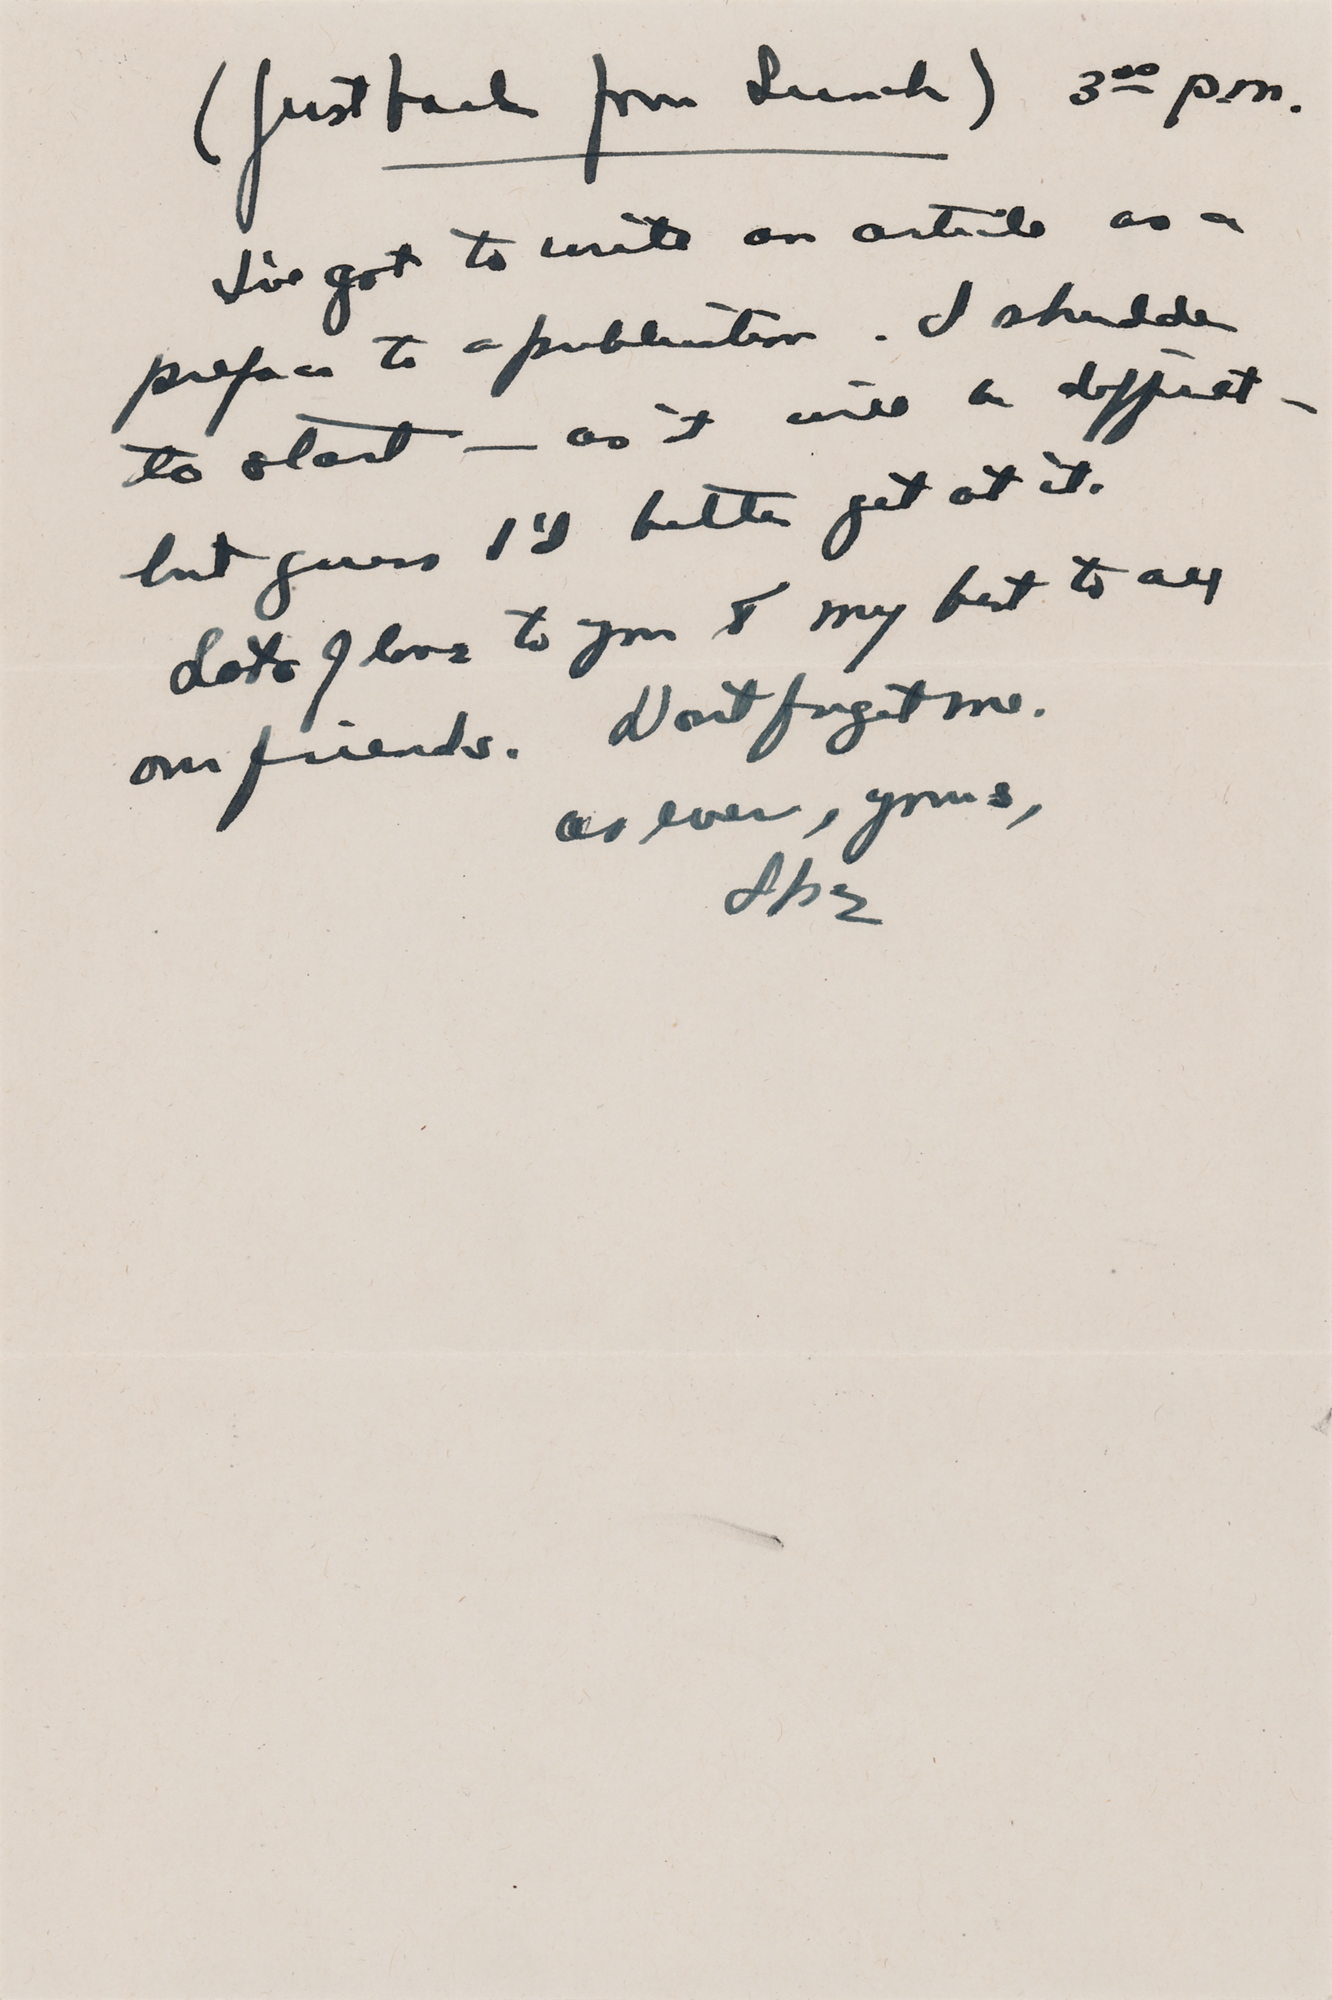 (Just back from Lunch) 3⁰⁰ p.m.
I've got to write an article as a
preface to a publication. I shudder
to start — as it will be difficult –
but guess I'd better get at it.
Lots of love to you & my best to all
our friends. Don't forget me.
as ever, yours,
Ike